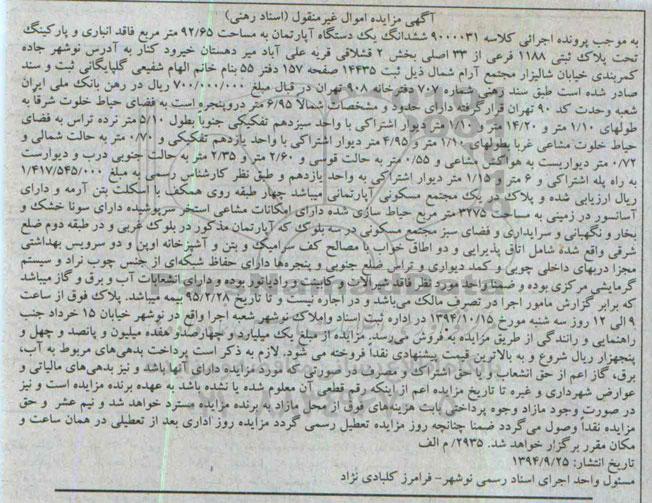 آگهی مزایده اموال غیرمنقول (اسناد رهنی)
به موجب پرونده اجرائی کلاسه ۹۰۰۰۰۳۱ ششدانگ یک دستگاه آپارتمان به مساحت ۹۲/۶۵ متر مربع فاقد انباری و پارکینگ
تحت پلاک ثبتی ۱۱۸۸ فرعی از ۳۳ اصلی بخش ۲ قشلاقی قریه علی آباد میر دهستان خیرود کنار به آدرس نوشهر جاده
کمربندی خیابان شالیزار مجتمع آرام شمال ذیل ثبت ۱۴۴۳۵ صفحه ۱۵۷ دفتر ۵۵ بنام خانم الهام شفیعی گلپایگانی ثبت و سند
صادر شده است طبق سند رهنی شماره ۷۰۷ دفترخانه ۹۰۸ تهران در قبال مبلغ ۷۰۰/۰۰۰/۰۰۰ ریال در رهن بانک ملی ایران
شعبه وحدت کد ۹۰ تهران قرار گرفته دارای حدود و مشخصات شمالا ۶/۹۵ متر دروپنجره است به فضای حیاط خلوت شرقا به
طولهای ۱/۱۰ متر و ۱۴/۲۰ متر و ۱/۱۰ متر دیوار اشتراکی با واحد سیزدهم تفکیکی جنوباً بطول ۵/۱۰ متر نرده تراس به فضای
حیاط خلوت مشاعی غربا بطولهای ۱/۱۰ متر و ۴/۹۵ متر دیوار اشتراکی با واحد یازدهم تفکیکی و ۰/۷۰ متر به حالت شمالی و
۰/۷۲ متر دیواریست به هواکش مشاعی و ۰/۵۵ متر به حالت قوسی و ۲/۶۰ متر و ۲/۳۵ متر به حالت جنوبی درب و دیواریست
به راه پله اشتراکی و ۶ متر و ۱/۱۵ متر دیوار اشتراکی به واحد یازدهم و طبق نظر کارشناس رسمی به مبلغ ۱/۴۱۷/۵۴۵/۰۰۰
ریال ارزیابی شده و پلاک در یک مجتمع مسکونی آپارتمانی میباشد چهار طبقه روی همکف با اسکلت بتن آرمه و دارای
آسانسور در زمینی به مساحت ۳۲۷۵ متر مربع حیاط سازی شده دارای امکانات مشاعی استخر سرپوشیده دارای سونا خشک و
بخار و نگهبانی و سرایداری و فضای سبز مجتمع مسکونی در سه بلوک که آپارتمان مذکور در بلوک غربی و در طبقه دوم ضلع
شرقی واقع شده شامل اتاق پذیرایی و دو اطاق خواب با مصالح کف سرامیک و پتن و آشپزخانه اوپن و دو سرویس بهداشتی
مجزا دربهای داخلی چوبی و کمد دیواری و تراس ضلع جنوبی و پنجره‌ها دارای حفاظ شبکه‌ای از جنس چوب نراد و سیستم
گرمایشی مرکزی بوده و ضمنا واحد مورد نظر فاقد شیرآلات و کابینت و رادیاتور بوده و دارای انشعابات آب و برق و گاز میباشد
که برابر گزارش مامور اجرا در تصرف مالک می‌باشد و در اجاره نیست و تا تاریخ ۹۵/۲/۲۸ بیمه میباشد. پلاک فوق از ساعت
۹ الی ۱۲ روز سه شنبه مورخ ۱۳۹۴/۱۰/۱۵ در اداره ثبت اسناد و املاک نوشهر شعبه اجرا واقع در نوشهر خیابان ۱۵ خرداد جنب
راهنمایی و رانندگی از طریق مزایده به فروش می‌رسد. مزایده از مبلغ یک میلیارد و چهارصد و هفده میلیون و پانصد و چهل و
پنجهزار ریال شروع و به بالاترین قیمت پیشنهادی نقداً فروخته می شود. لازم به ذکر است پرداخت بدهی‌های مربوط به آب،
برق، گاز اعم از حق انشعاب و یا حق اشتراک و مصرف در صورتی که مورد مزایده دارای آنها باشد و نیز بدهی‌های مالیاتی و
عوارض شهرداری و غیره تا تاریخ مزایده اعم از اینکه رقم قطعی آن معلوم شده یا نشده باشد به عهده برنده مزایده است و نیز
در صورت وجود مازاد وجوه پرداختی بابت هزینه‌های فوق از محل مازاد به برنده مزایده مسترد خواهد شد و نیم عشر و حق
مزایده نقداً وصول می‌گردد ضمنا چنانچه روز مزایده تعطیل رسمی گردد مزایده روز اداری بعد از تعطیلی در همان ساعت و
مکان مقرر برگزار خواهد شد. ۲۹۳۵/ م الف
تاریخ انتشار: ۱۳۹۴/۹/۲۵
مسئول واحد اجرای اسناد رسمی نوشهر- فرامرز کلبادی نژاد